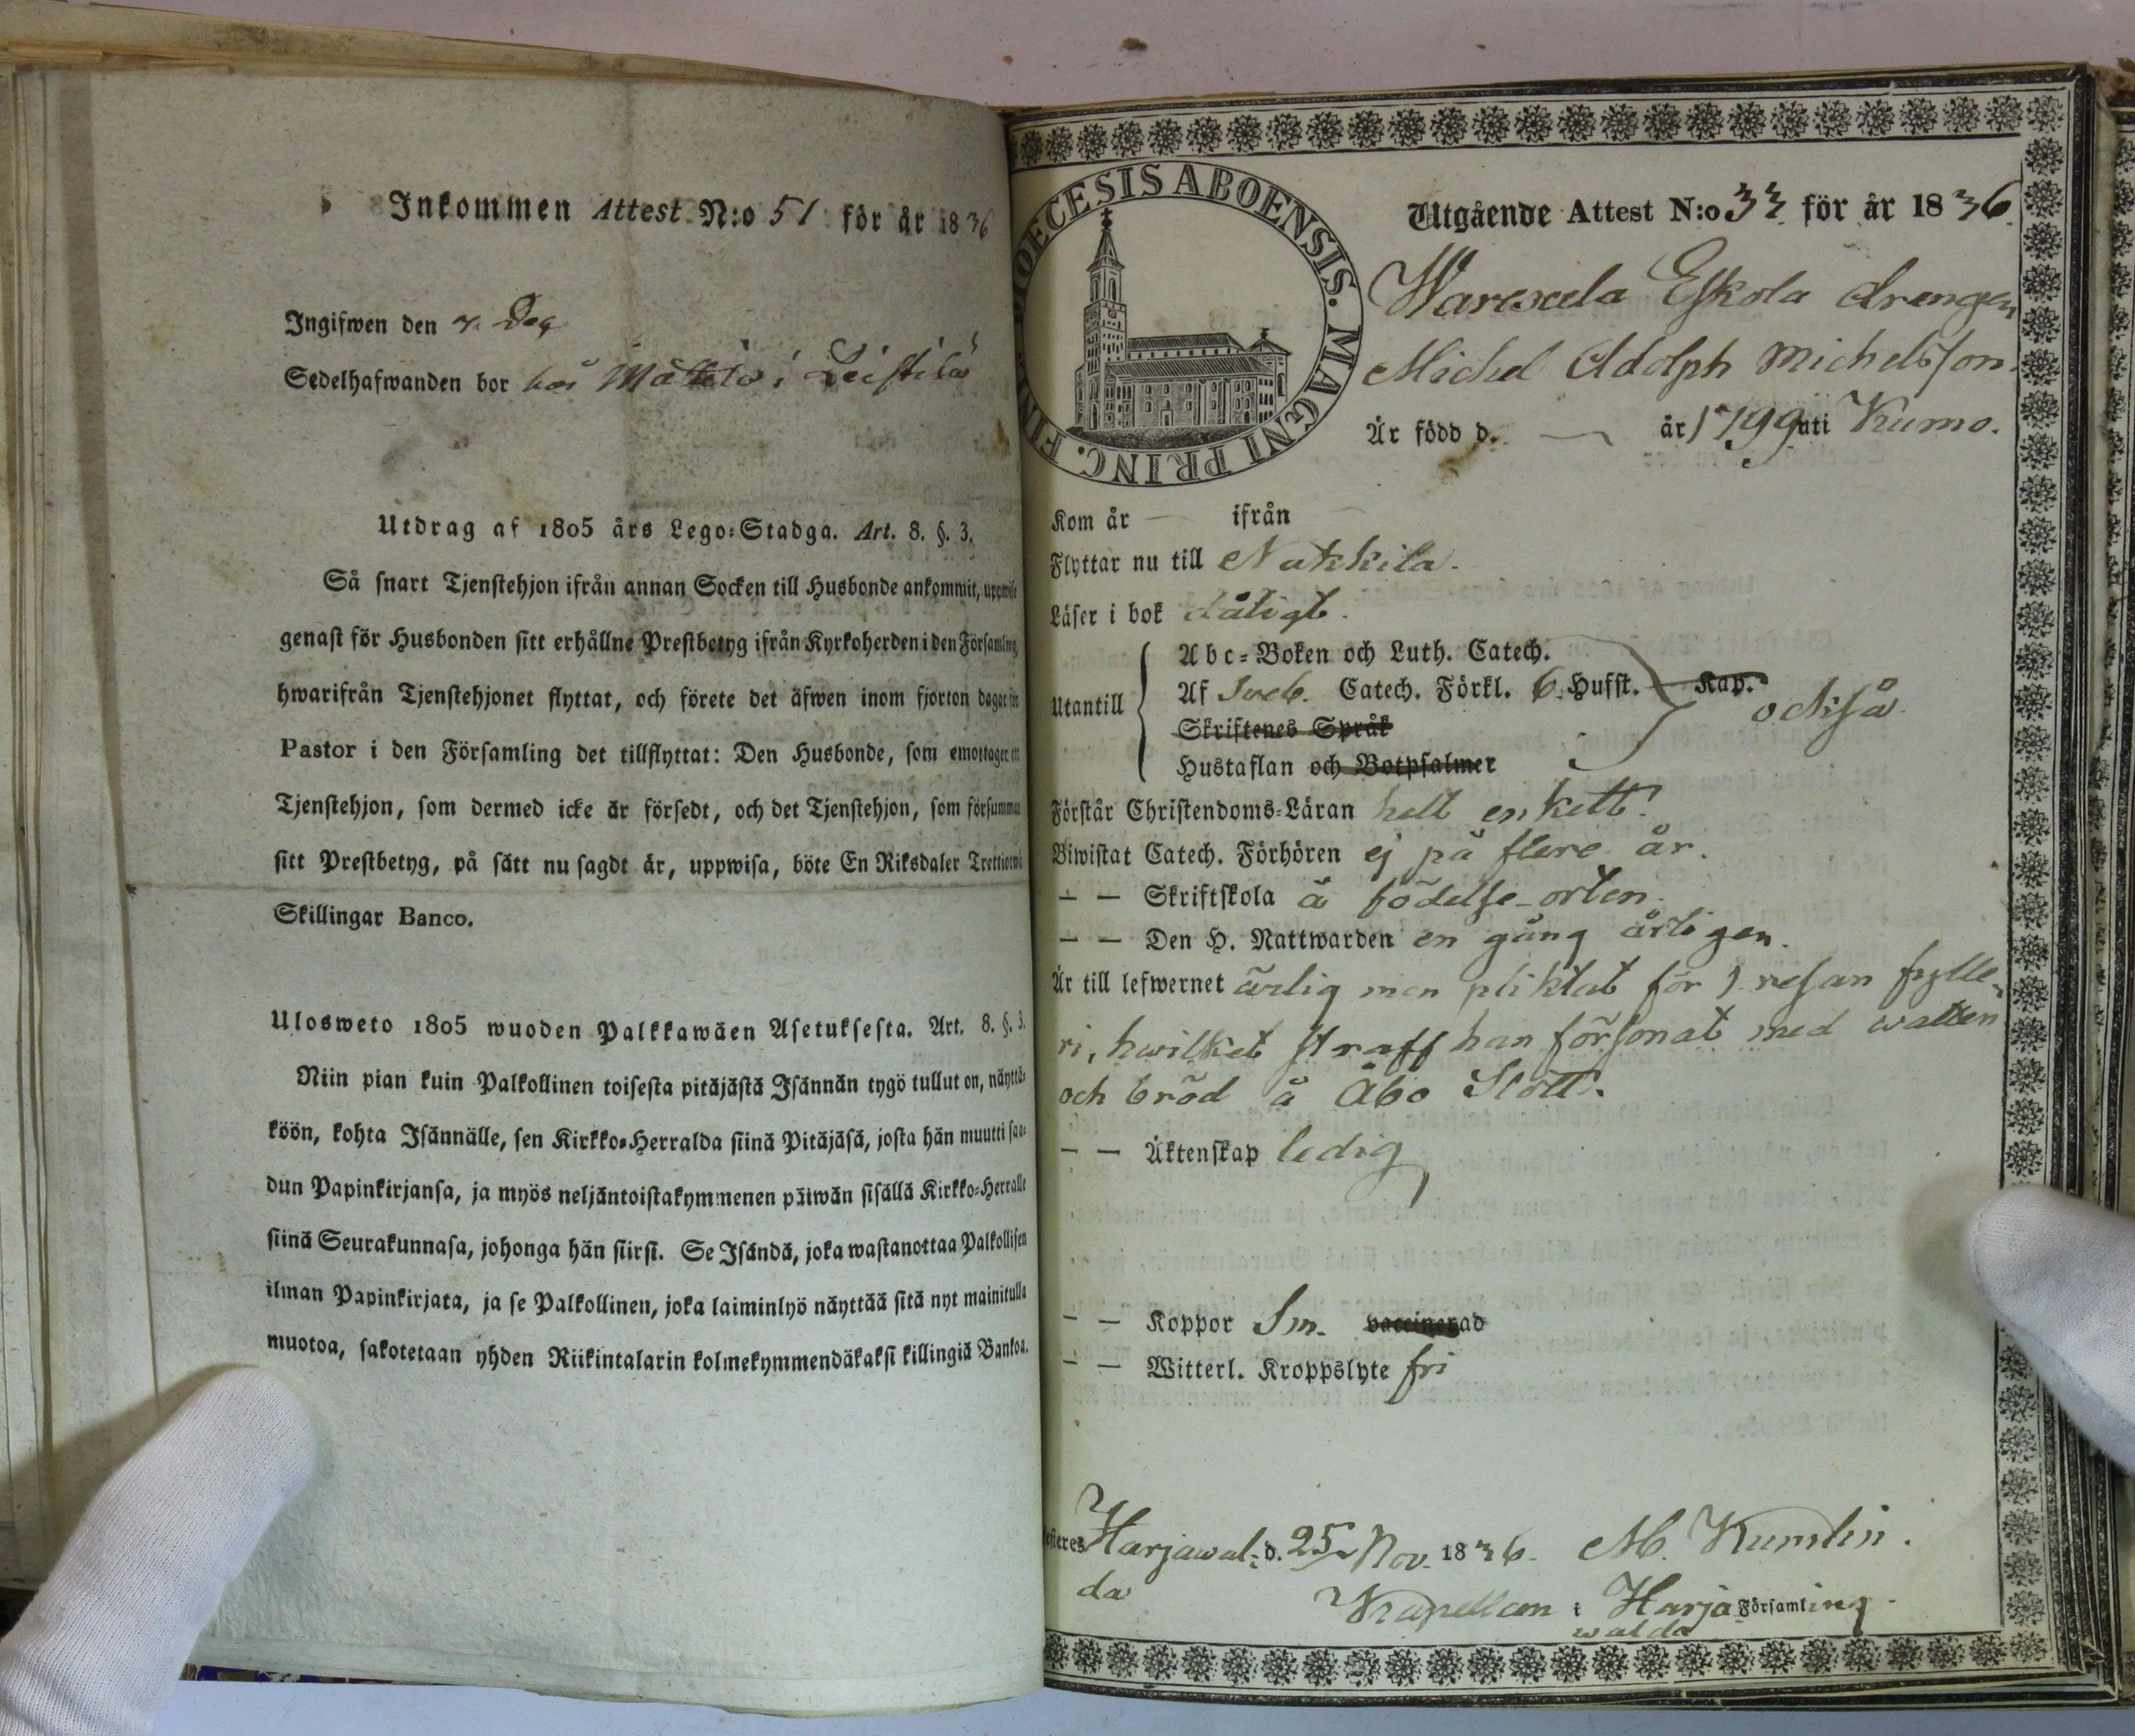 Inkommen Attest N:o 51 för år 1836
Ingifwen den Dec
Sedelhafwanden bor hos Mattila i Leistilä
Utdrag af 1805 års Lego-Stadga. Art. 8. §. 3.
Så snart Tjenstehjon ifrån annan Socken till Husbonde ankommit, uppwise
genast för Husbonden sitt erhållne Prestbetyg ifrån Kyrkoherden i den Församling,
hwarifrån Tjenstehjonet flyttat, och förete det äfwen inom fjorton dagar för
Pastor i den Församling det tillflyttat: Den Husbonde, som emottager ett
Tjenstehjon, som dermed icke är försedt, och det Tjenstehjon, som försummar
sitt Prestbetyg, på sätt nu sagdt är, uppwisa, böte En Riksdaler Trettiotwå
Skillingar Banco.
Ulosweto 1805 wuoden Palkkawäen Asetuksesta. Art. 8. §. 3.
Niin pian kuin Palkollinen toisesta pitäjästä Isännän tygö tullut on, näyttä-
köön, kohta Isännälle, sen Kirkko-Herralda siinä Pitäjäsä, josta hän muutti saa-
dun Papinkirjansa, ja myös neljäntoistakymmenen päiwän sisällä Kirkko-Herralle
siinä Seurakunnasa, johonga hän siirsi. Se Isändä, joka wastanottaa Palkollisen
ilman Papinkirjata, ja se Palkollinen, joka laiminlyö näyttää sitä nyt mainitulla
muotoa, sakotetaan yhden Riikintalarin kolmekymmendäkaksi killingiä Bankoa.
DIOECESIS ABOENSIS. MAGNI PRINC. FIN
Utgående Attest N:o 33 för år 1836
Eskola drengen
Michel Adolph Michelsson.
Är född d. — år 1799 uti Kumo.
Kom år — ifrån —
Flyttar nu till Nakkila.
Läser i bok dåligt.
Utantill
Abc-Boken och Luth. Catech.
Af Sveb. Catech. Förkl. 6 Hufst. Kap.
också
Skriftenes Språk
Hustaflan och Botpsalmer
Förstår Christendoms-Läran helt enkelt.
Biwistat Catech. Förhören ej på flere år.
— — Skriftskola å födelse-orten.
— — Den H. Nattwarden en gång årligen.
Är till lefwernet ärlig men pliktat för 1 resan fylle-
ri, hwilket straff han försonat med watten
och bröd å Åbo Slott.
— — Äktenskap ledig
— — Koppor Sm. vaccinerad
— — Witterl. Kroppslyte fri
Harjawal- d. 25 Nov. 1836. M. Kumlin.
da
Kapellan i Harja Församling
walda